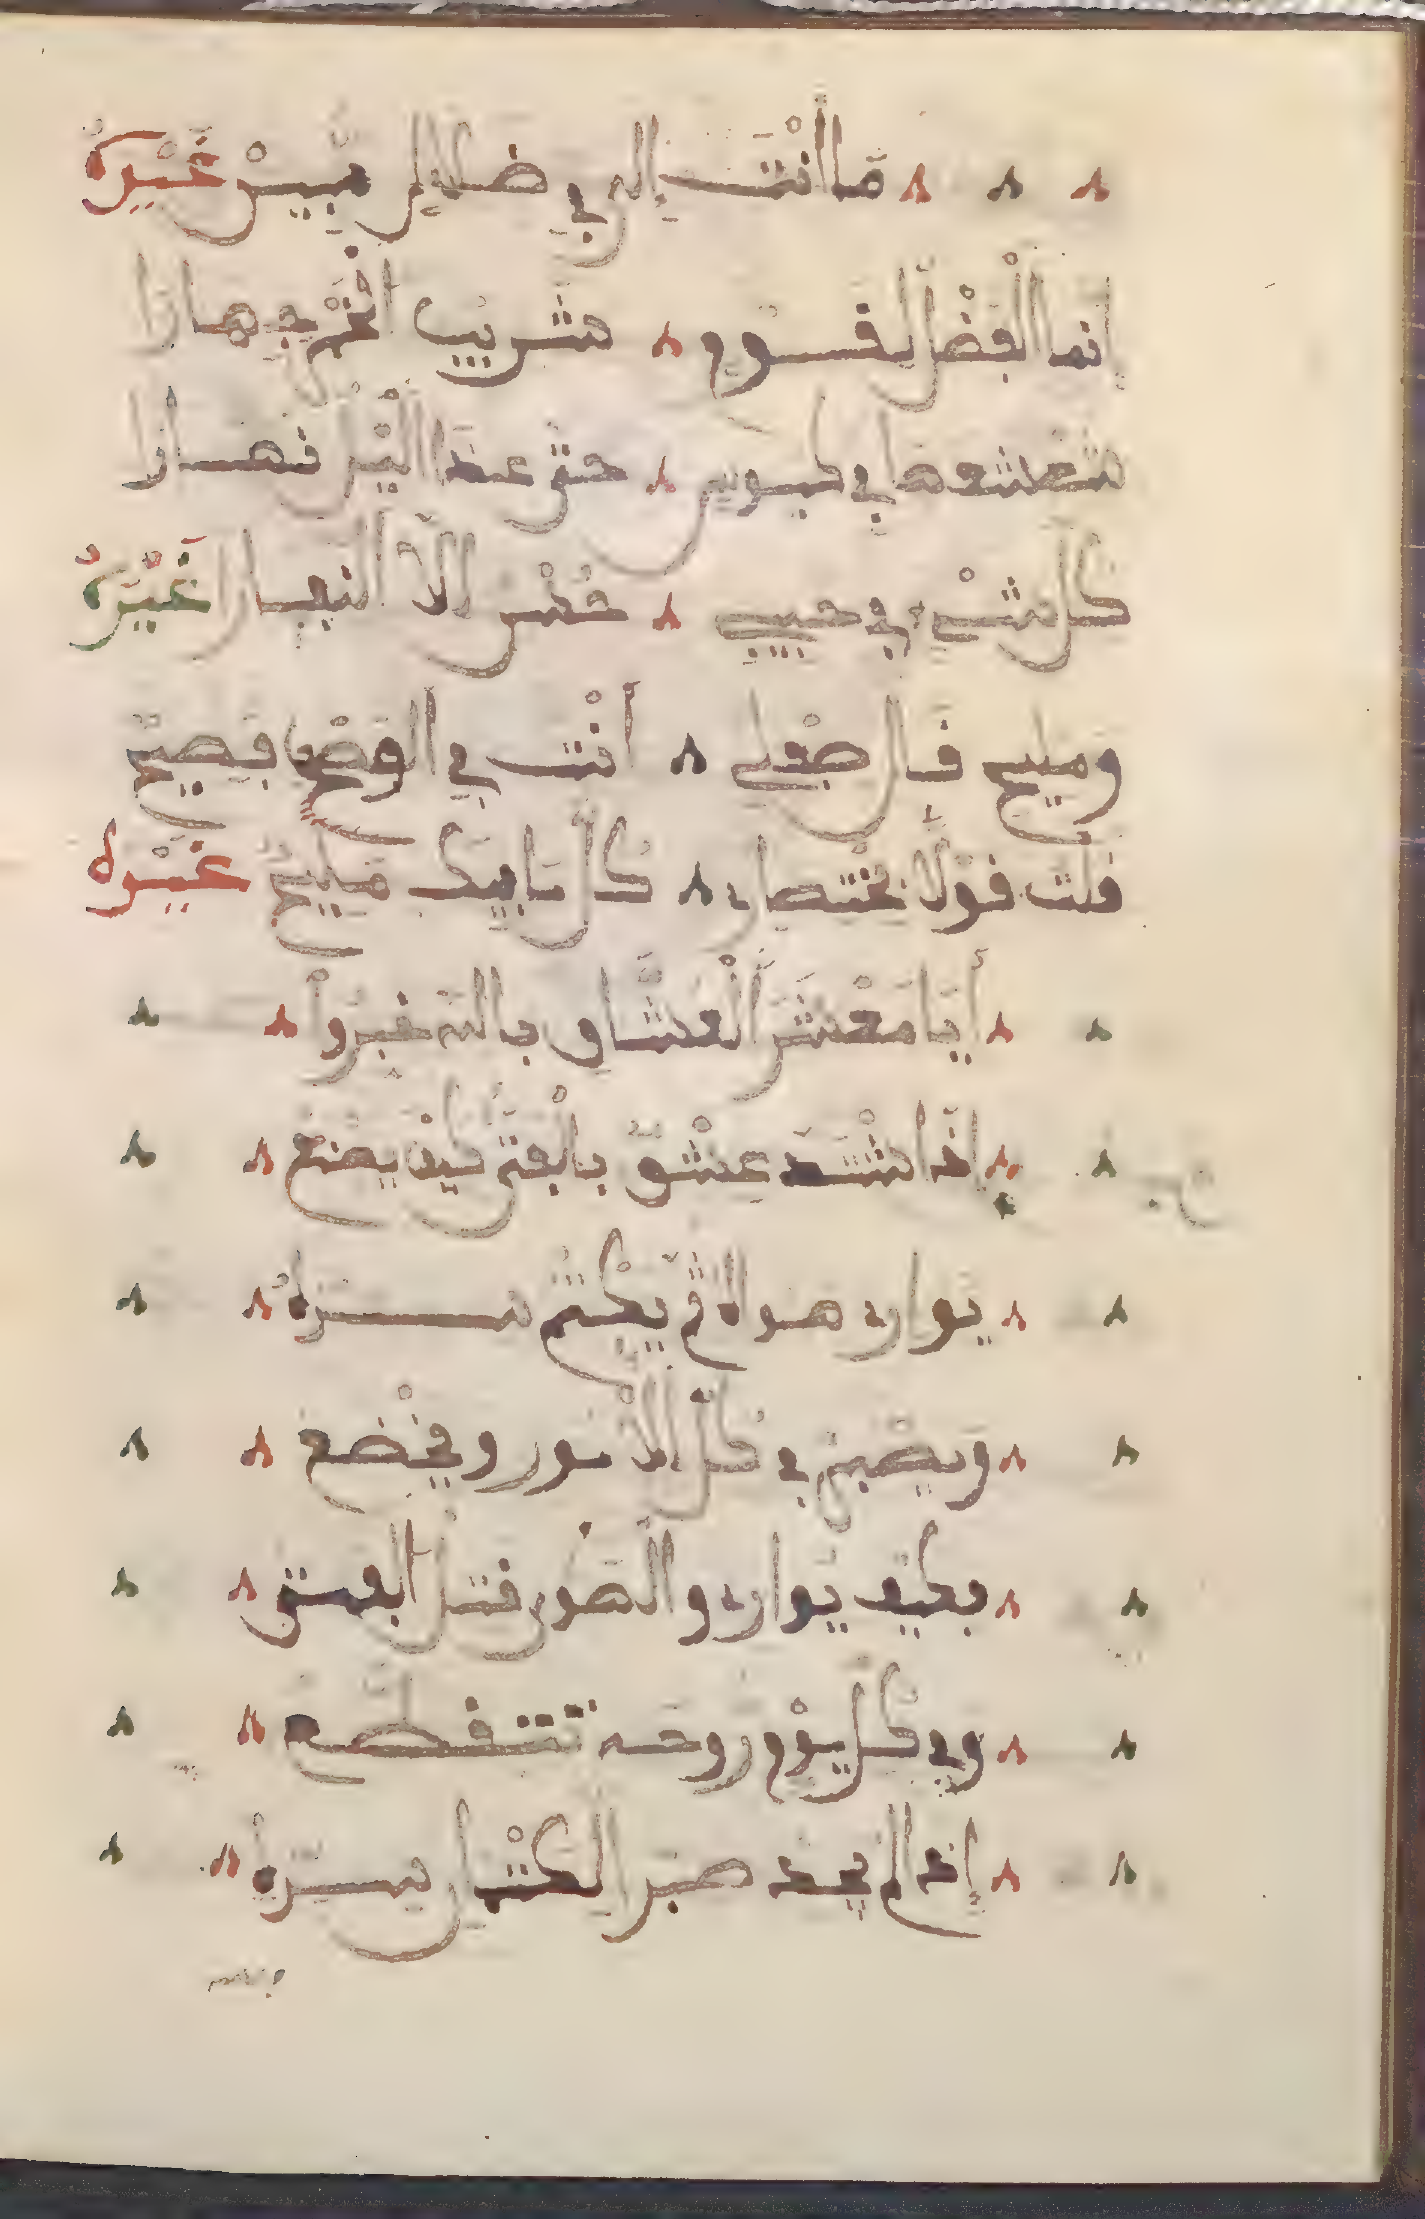 ما أنت إلا في ضلال مبين غيره
إنما الفضل لقوم شربت الخمر جهارا
شعشعوها في كؤوس حتى عند اليل نهارا
كل شيء في حبيبي حسن إلا النفارا غيره
ومليح قال صفني أنت في الوصف فصيح
قلت قولا باختصار كل ما فيك مليح غيره
أيا معشر العشاق بالله خبروا
إذا اشتد عشق بالفتى كيف يصنع
يواري هواه ثم يكتم سره
ويصبر في كل الأمور ويخضع
فكيف يواري والهوى قاتل الفتى
وفي كل يوم روحه تتقطع
إذا لم يجد صبرا لكتمان سره